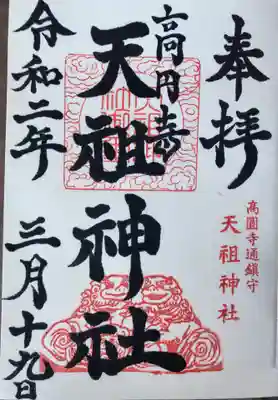 奉拝
高圓寺通鎮守
天祖神社
高円寺
天祖神社
令和二年
三月十九日